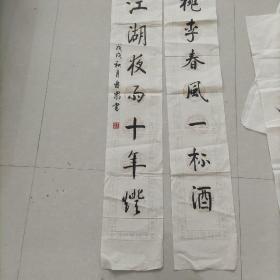 桃李春風一杯酒
江湖夜雨十年燈
戊戌秋月
書